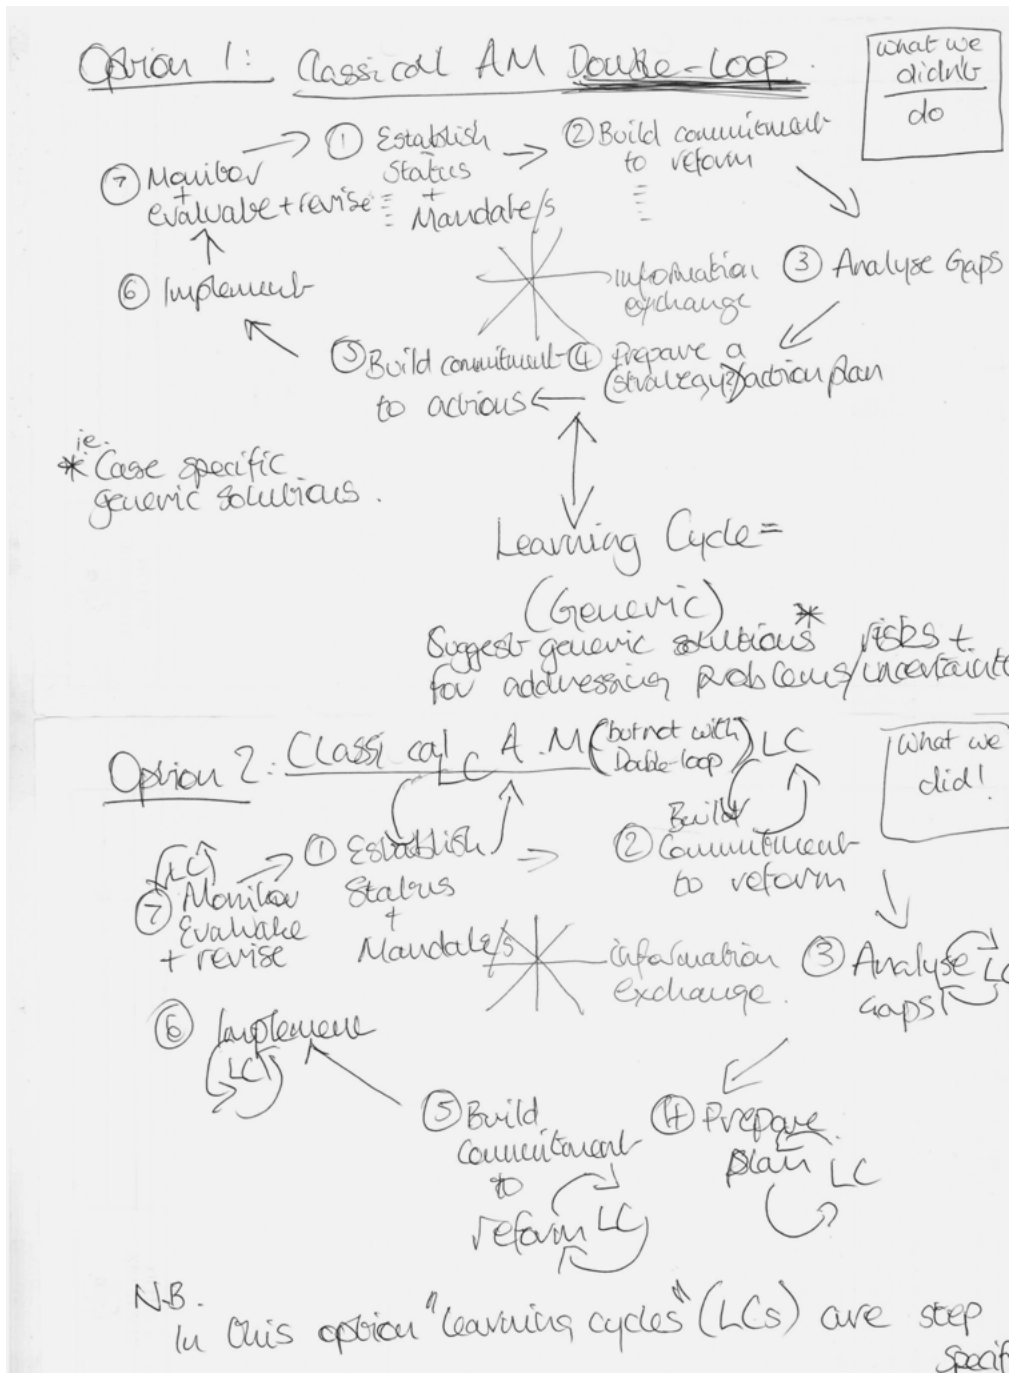 Option 1: Classical AM Double-Loop.
What we
didn't
do
① Establish
Status
+
Mandate/s
② Build commitment
to reform
③ Analyse Gaps
④ Prepare a
(strategy?) action plan
⑤ Build commitment
to actions
⑥ Implement
⑦ Monitor
+
evaluate + revise
information
exchange
ie.
* Case specific
generic solutions.
Learning Cycle =
(Generic)
Suggest generic solutions* risks +
for addressing problems/uncertainte
Option 2: Classical A.M (but not with
Double-loop)
What we
did!
LC
① Establish
Status
+
Mandate/s
LC
② Build
Commitment
to reform
③ Analyse LC
Gaps
④ Prepare
plan LC
⑤ Build
commitment
to
reform LC
⑥ Implement
LC
LC
⑦ Monitor
Evaluate
+ revise
information
exchange.
N.B.
In this option "learning cycles" (LCs) are step
specif